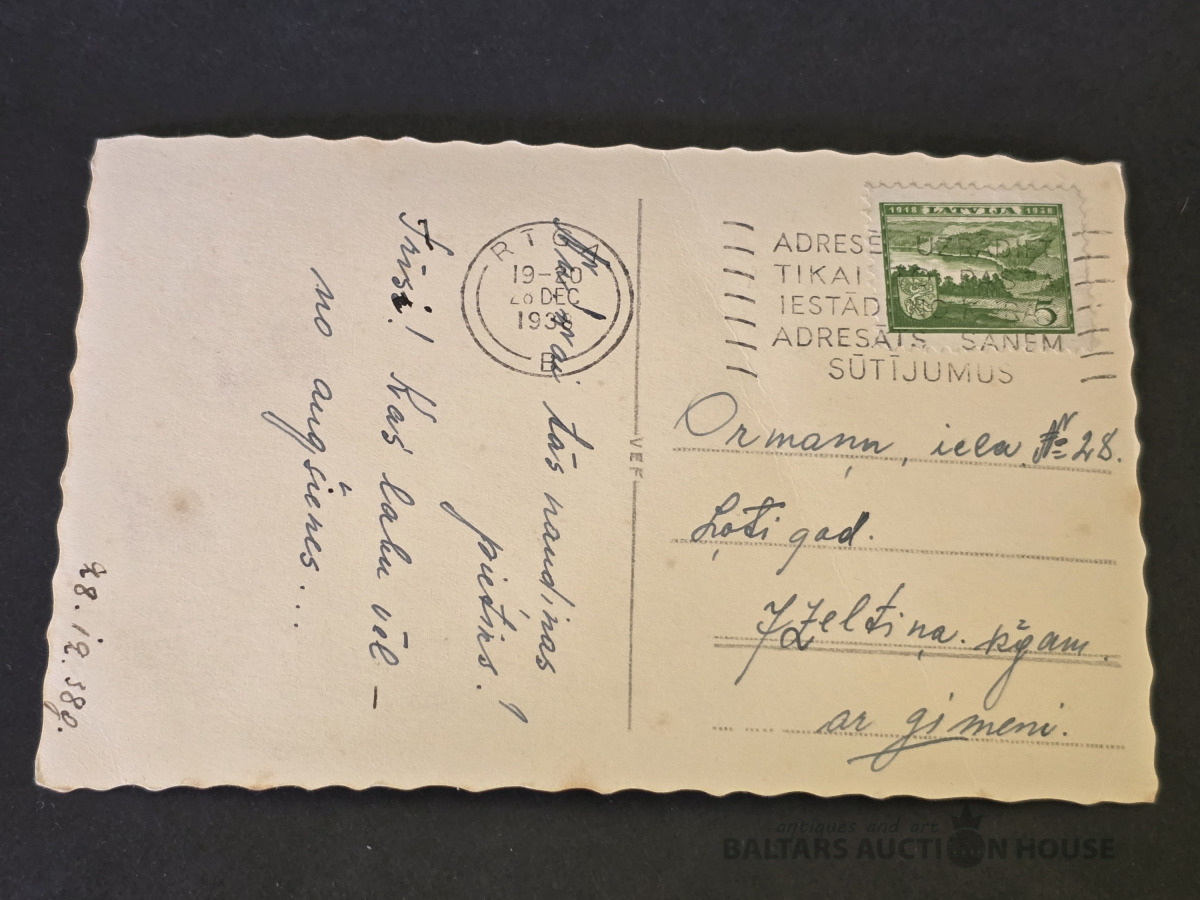 RĪGA
19-20
28 DEC
1938
B
ADRESĒ UZRĀDIET
TIKAI
IESTĀD
ADRESĀTS SAŅEM
SŪTĪJUMUS
1918 LATVIJA 1938
5
tās naudiņas
pietiks!
Kas labu vēl –
no augšienes...
28.12.38g.
VEF
Ormaņu, iela № 28.
Ļoti god.
J Zeltiņa. kgam.
ar ģimeni.
antiques and art
BALTARS AUCTION HOUSE